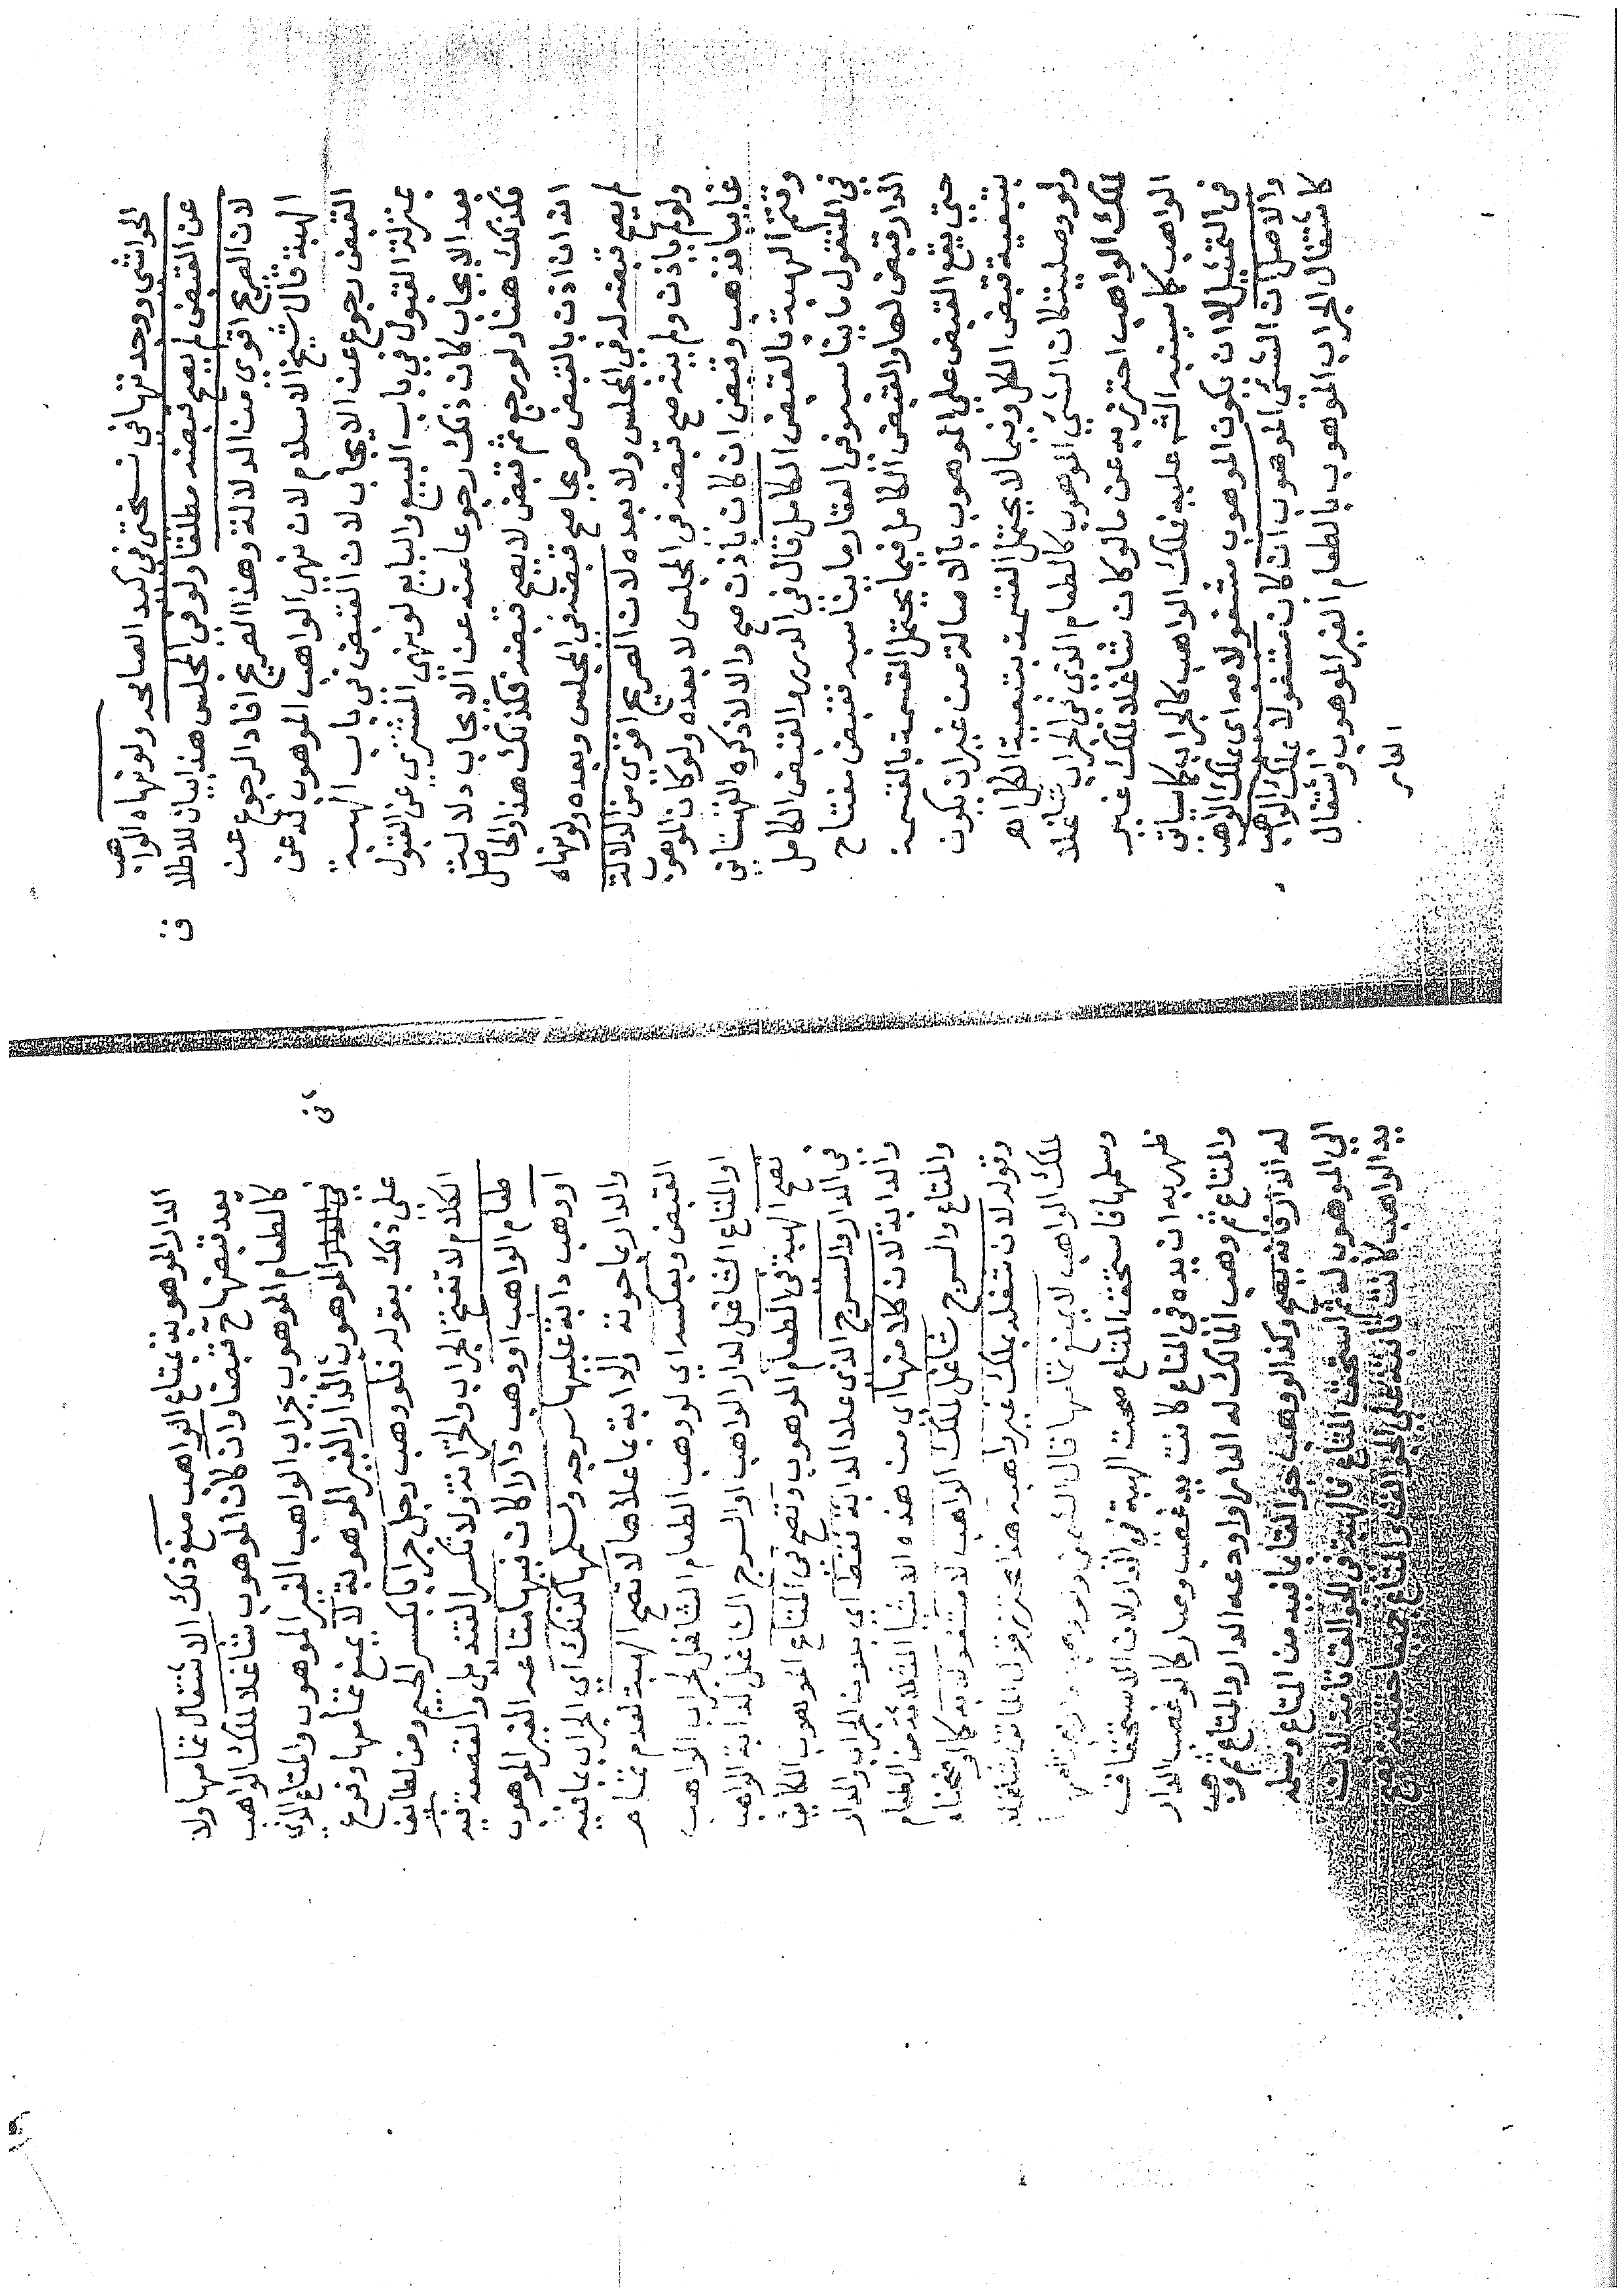 الحواشي ووجدتها في نسختي كبد الصاعد ولو نهاه الواهب
عن القبض لم يصح قبضه مطلقا ولو في المجلس هذا بيان للاطلا
ق
لان الصريح اقوي من الدلالة وهذا الصريح افاد الرجوع عن
الهبة قال شيخ الاسلام لان نهي الواهب الموهوب له عن
القبض رجوع عن الايجاب لان القبض في باب الهبة
بمنزلة القبول في باب البيع والبايع لو نهي المشتري عن القبول
بعد الايجاب كان ذلك رجوعا منه عن الايجاب دلالة
فكذلك هنا ولو رجع ثم قبض لا يصح قبضه فكذلك هذا والحاصل
انه ان اذن بالقبض صريحا صح قبضه في المجلس وبعده ولو نهاه
لم يصح قبضه لا في المجلس ولا بعده لان الصريح اقوي من الدلالة
ولو لم ياذن ولم ينه صح قبضه في المجلس لا بعده ولو كان الموهوب
غايبا فذهب وقبض ان كان باذن صح والا لا ذكره القهستاني
وتتم الهبة بالقبض الكامل قال في الدرر والقبض الكامل
في المنقول ما يناسبه وفي العقار ما يناسبه فقبض مفتاح
الدار قبض لها والقبض الكامل فيما يحتمل القسمة بالقسمة
حتي يقع القبض علي الموهوب بالاصالة من غير ان يكون
بتبعية قبض الكل وفيما لا يحتمل القسمة بتبعية الكل اهـ
ولو وصلية كان الشي الموهوب كالطعام الذي في الجراب شاغلا
لملك الواهب احترز به عن ما لو كان شاغلا لملك غير
الواهب كما سينبه الش عليه فملك الواهب كالجراب كما سياتي
في التمثيل لا ان يكون الموهوب مشغولا به اي بملك الواهب
والاصل ان الشي الموهوب ان كان مشغولا بملك الواهب
كاشتغال الجراب الموهوب بالطعام الغير الموهوب واشتغال
الدار
الدار الموهوبة بمتاع الواهب منع ذلك الاشتغال تمامها ولا
يعد قبضها ح قبضا وان كان الموهوب شاغلا لملك الواهب
كالطعام الموهوب بجراب الواهب الغير الموهوب والمتاع الذي
في الدار الموهوب بالدار الغير الموهوبة لا يمنع تمامها وفرع
علي ذلك بقوله فلو وهب رجل جرابا بكسر الجيم ومن لطايف
الكلام لا تفتح الجراب والخزانة ولا تكسر القنديل والقصعة فيه
طعام الواهب او وهب دارا كان فيها متاعه الغير الموهوب
او وهب دابة عليها سرجه وسلمها كذلك اي الجراب بما فيه
والدار بما حوته والدابة بما علاها لا تصح الهبة لعدم تمام
القبض وبعكسه اي لو وهب الطعام الشاغل لجراب الواهب
او المتاع الشاغل لدار الواهب او السرج الشاغل لدابة الواهب
تصح الهبة في الطعام الموهوب وتصح في المتاع الموهوب الكاين
في الدار والسرج الذي علا الدابة فقط اي بدون الجراب والدار
والدابة لان كلا منها اي من هذه الاشيا الثلاثة من الطعام
والمتاع والسرج شاغل لملك الواهب لا مشغول به
وقوله لان شغله بملك غير واهبه هذا محترز قول الماتن شاغلا
لملك الواهب لا يمنع تمامها قال
وسلمها فاستحق المتاع صحت الهبة في الدار لان الاستحقاق
ظهر به ان يده في المتاع كانت يد غصب وصار كما لو غصب الدار
والمتاع ثم وهب المالك له الدار او اودعه الدار والمتاع ثم وهب
له الدار فانه يصح وكذا لو وهب جوالقا بما فيه من المتاع وسلمه
الي الموهوب له ثم استحق المتاع فالهبة في الجوالق تامة لان
يد الواهب كانت ثابتة علي الجوالق والمتاع جميعا حقيقة فصح